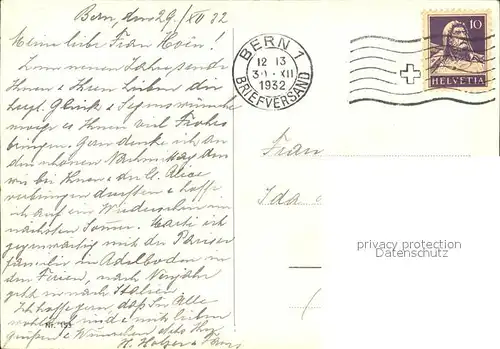 Bern, den 29./XII 32
Meine liebe Frau
Zum neuen Jahre sende
Ihnen & Ihren Lieben die
herzl. Glück & Segenswünsche
möge es Ihnen viel Frohes
bringen. Gern denke ich an
den schönen Nachm. den
wir bei Ihnen & Alice
verbringen durften & hoffe
ich auf ein Wiedersehen im
nächsten Sommer. ich
gegenwärtig mit der
familie in Adelboden in
den Ferien, nach Neujahr
geht es nach Italien.
Ich hoffe gern, daß Sie Alle
wohl sind & mit lieben
Grüßen & Wünschen stets Ihre
H.
Nr. 153
BERN 1
12 13
31. XII
1932
BRIEFVERSAND
10
HELVETIA
Frau
Ida
privacy protection
Datenschutz